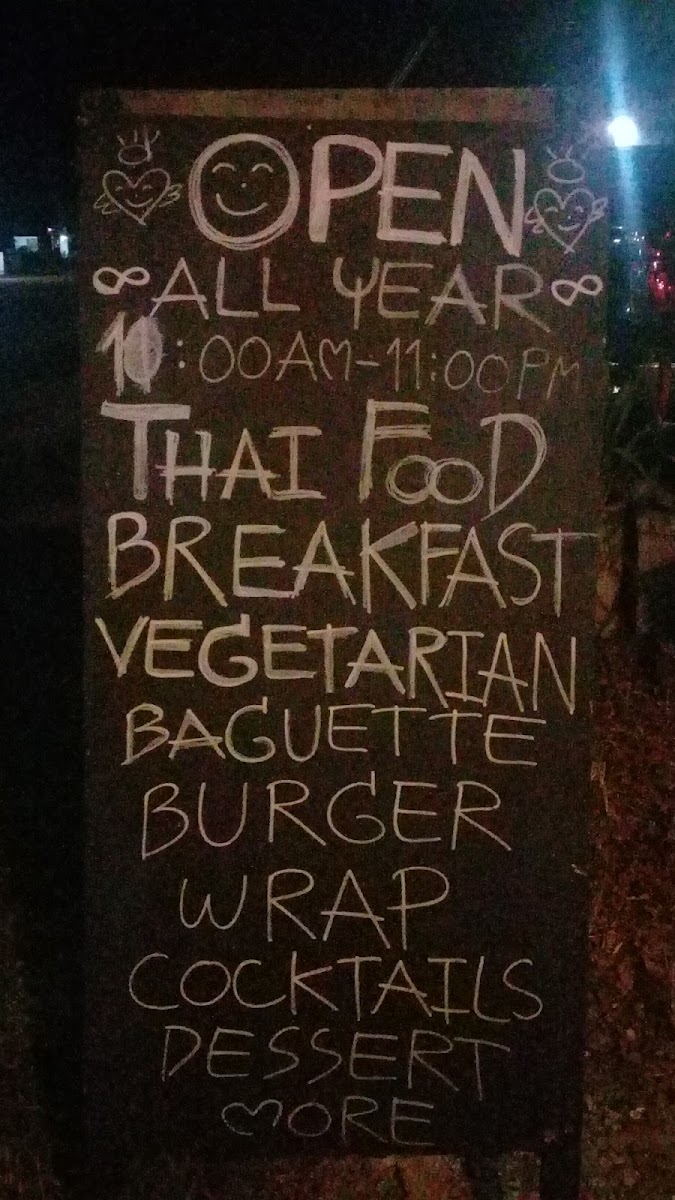 OPEN
∞ ALL YEAR ∞
10:00AM-11:00PM
THAI FOOD
BREAKFAST
VEGETARIAN
BAGUETTE
BURGER
WRAP
COCKTAILS
DESSERT
MORE